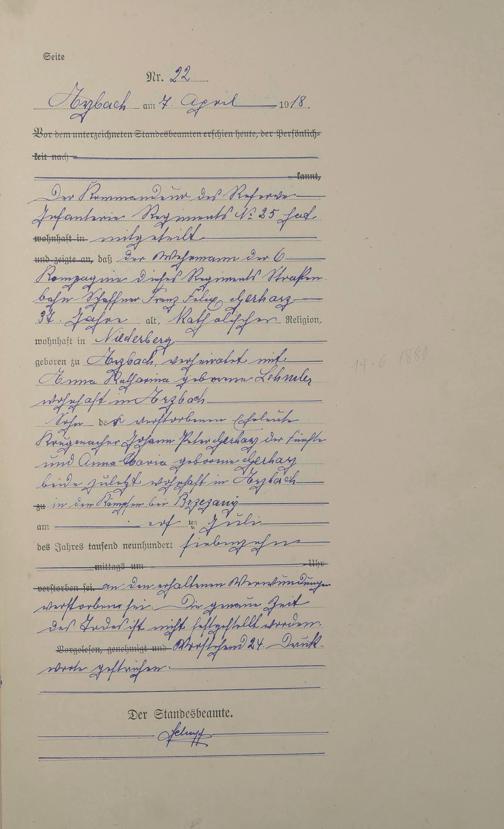 Seite
Nr. 22
Arzbach am 7. April 1918.
Vor dem unterzeichneten Standesbeamten erschien heute, der Persönlich-
keit nach
kannt,
Der Kommandeur des Reserve
Infanterie Regiments No 25 hat
wohnhaft in mitgeteilt
und zeigte an, daß der Wehrmann der 6
Kompagnie dieses Regiments Straßen
bahn Schaffner Franz Felix Gerharz
34 Jahre alt, Katholischer Religion,
wohnhaft in Niederberg
geboren zu Arzbach, verheiratet mit
Anna Katharina geborene
wohnhaft in Arzbach
Sohn der verstorbenen Eheleute
Johann Peter Gerharz der fünfte
und Anna Maria geborene Gerharz
beide zuletzt wohnhaft in Arzbach
zu in den Kämpfen bei Brzezany
am elf ten Juli
des Jahres tausend neunhundert siebenzehn
mittags um Uhr
verstorben sei. an den erhaltenen Verwundungen
verstorben sei. Die genaue Zeit
des Todes ist nicht festgestellt worden.
Vorgelesen, genehmigt und Vorstehend 24 Druck-
worte gestrichen.
Der Standesbeamte.
14-6 1880